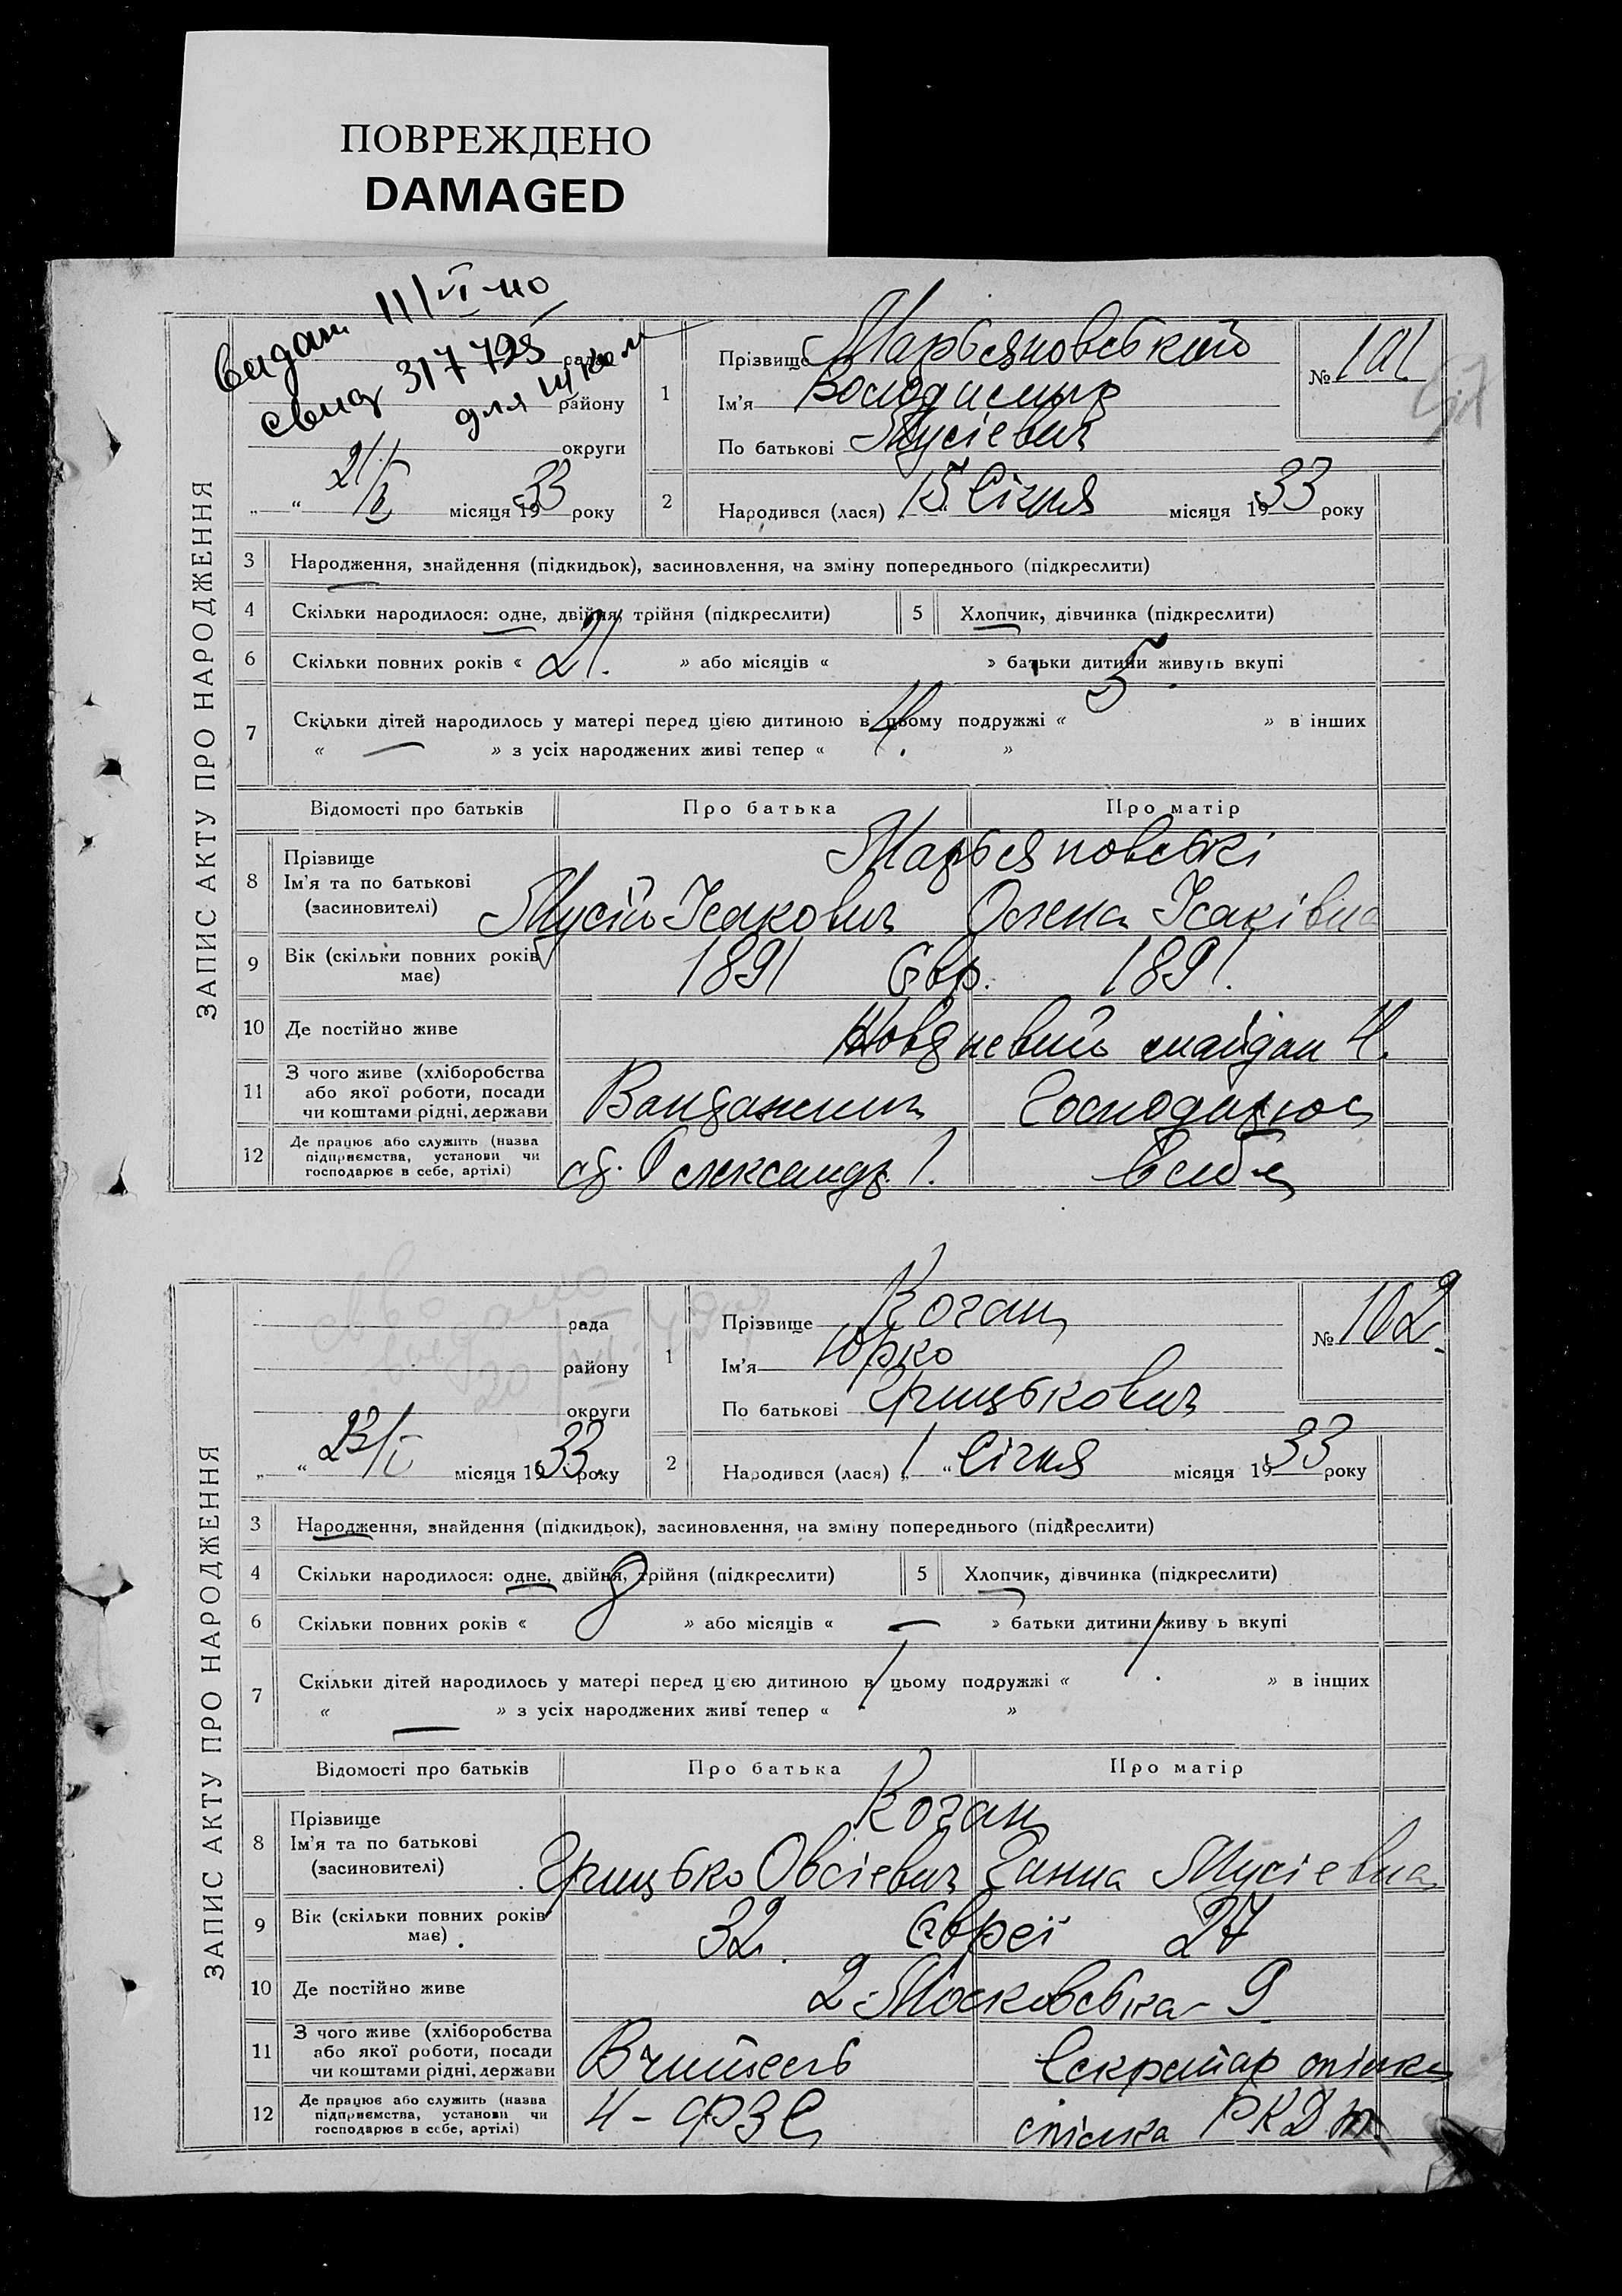 ПОВРЕЖДЕНО
DAMAGED
ЗАПИС АКТУ ПРО НАРОДЖЕННЯ
видат 11/VI-40
свид 317 725 рада
для школи району
округи
„ “ 21/I місяця 1933 року
1
Прізвище Марьяновський
Ім’я Володимир
По батькові Мусієвич
№ 101
2 Народився (лася) 15 Січня місяця 1933 року
3 Народження, знайдення (підкидьок), засиновлення, на зміну попереднього (підкреслити)
4 Скільки народилося: одне, двійня, трійня (підкреслити) 5 Хлопчик, дівчинка (підкреслити)
6 Скільки повних років « 21. » або місяців « » батьки дитини живуть вкупі
7 Скільки дітей народилось у матері перед цією дитиною в цьому подружжі « 5. » в інших
« — » з усіх народжених живі тепер « 4. »
Відомості про батьків Про батька Про матір
8 Прізвище Марьяновські
Ім’я та по батькові
(засиновителі) Мусій Ісакович Олена Ісаківна
9 Вік (скільки повних років має) 1891 Євр. 1891.
10 Де постійно живе Жовдневий майдан 4.
11 З чого живе (хліборобства
або якої роботи, посади
чи коштами рідні, держави Вандажник Господарює
12 Де працює або служить (назва
підприємства, установи чи
господарює в себе, артілі) ст. Олександр. 1. в себе
ЗАПИС АКТУ ПРО НАРОДЖЕННЯ
рада
району
округи
„ “ 23/I місяця 1933 року
1
Прізвище Коган
Ім’я Юрко
По батькові Грицькович
№ 102
2 Народився (лася) „ 1 “ Січня місяця 1933 року
3 Народження, знайдення (підкидьок), засиновлення, на зміну попереднього (підкреслити)
4 Скільки народилося: одне, двійня, трійня (підкреслити) 5 Хлопчик, дівчинка (підкреслити)
6 Скільки повних років « 8 » або місяців « — » батьки дитини живу ь вкупі
7 Скільки дітей народилось у матері перед цією дитиною в цьому подружжі « 1. » в інших
« — » з усіх народжених живі тепер « 1 »
Відомості про батьків Про батька Про матір
8 Прізвище Коган
Ім’я та по батькові
(засиновителі) Грицько Овсієвич Ганна Мусієвна
9 Вік (скільки повних років має) 32. Євреї 27
10 Де постійно живе 2-Московська - 9
11 З чого живе (хліборобства
або якої роботи, посади
чи коштами рідні, держави Вчитель Секретар спілки
12 Де працює або служить (назва
підприємства, установи чи
господарює в себе, артілі) 4 - ФЗС спілка РКД